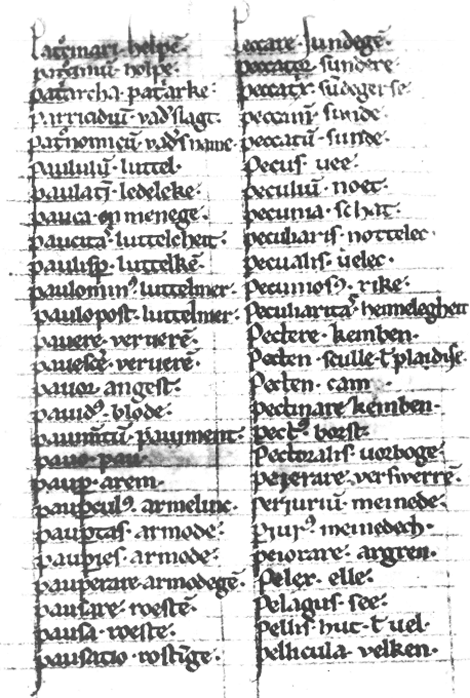 Patͥmari· helpē·
patͥmiū· helpe·
patͥarcha· patͥarke·
parricidiū· vad'slagt·
patͦnomicū· vad's name·
paululū· luttel·
paulatī· ledeleke·
pauca· en menege·
paucitaˢ· luttelcheit·
paulisꝑ· luttelkē·
paulominꝰ· luttelmer·
paulo post· luttelmer·
pauere· ververē·
pauescē· ververē·
pauor· angest·
pauidꝰ· blode·
paumētū· pauiment·
pauo· pau·
pauꝑ· arem·
pauꝑculꝰ· armelinc·
pauꝑtas· armode·
pauꝑies· armode·
pauꝑtare· armodegē·
pausare· roestē·
pausa· roeste·
pausatio· rostīge·
Peccare· sundegē·
peccator· sundere·
peccatͥx· sūdegerse·
peccamī· sunde·
peccatū· sunde·
Pecus· vee·
peculiū· noet·
pecunia· schat·
peculiaris· nottelec·
pecualis· velec·
pecuniosꝰ· rike·
Peculiaritaˢ· heimelegheit
Pectere· kemben·
Pecten· sculle· ł plaidise·
Pecten· cam·
pectinare· kemben·
pectꝰ· borst·
Pectoralis· vorboge·
peierare· verswerrē·
periuriū· meinede·
Piurꝰ· meinedech·
peiorare· argren·
Pelex· elle·
Pelagus· see·
Pellis· hut· ł vel·
pellicula· velken·